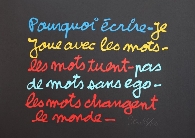 Pourquoi écrire - Je
Joue avec les mots -
les mots tuent - pas
de mots sans ego -
les mots changent
le monde -